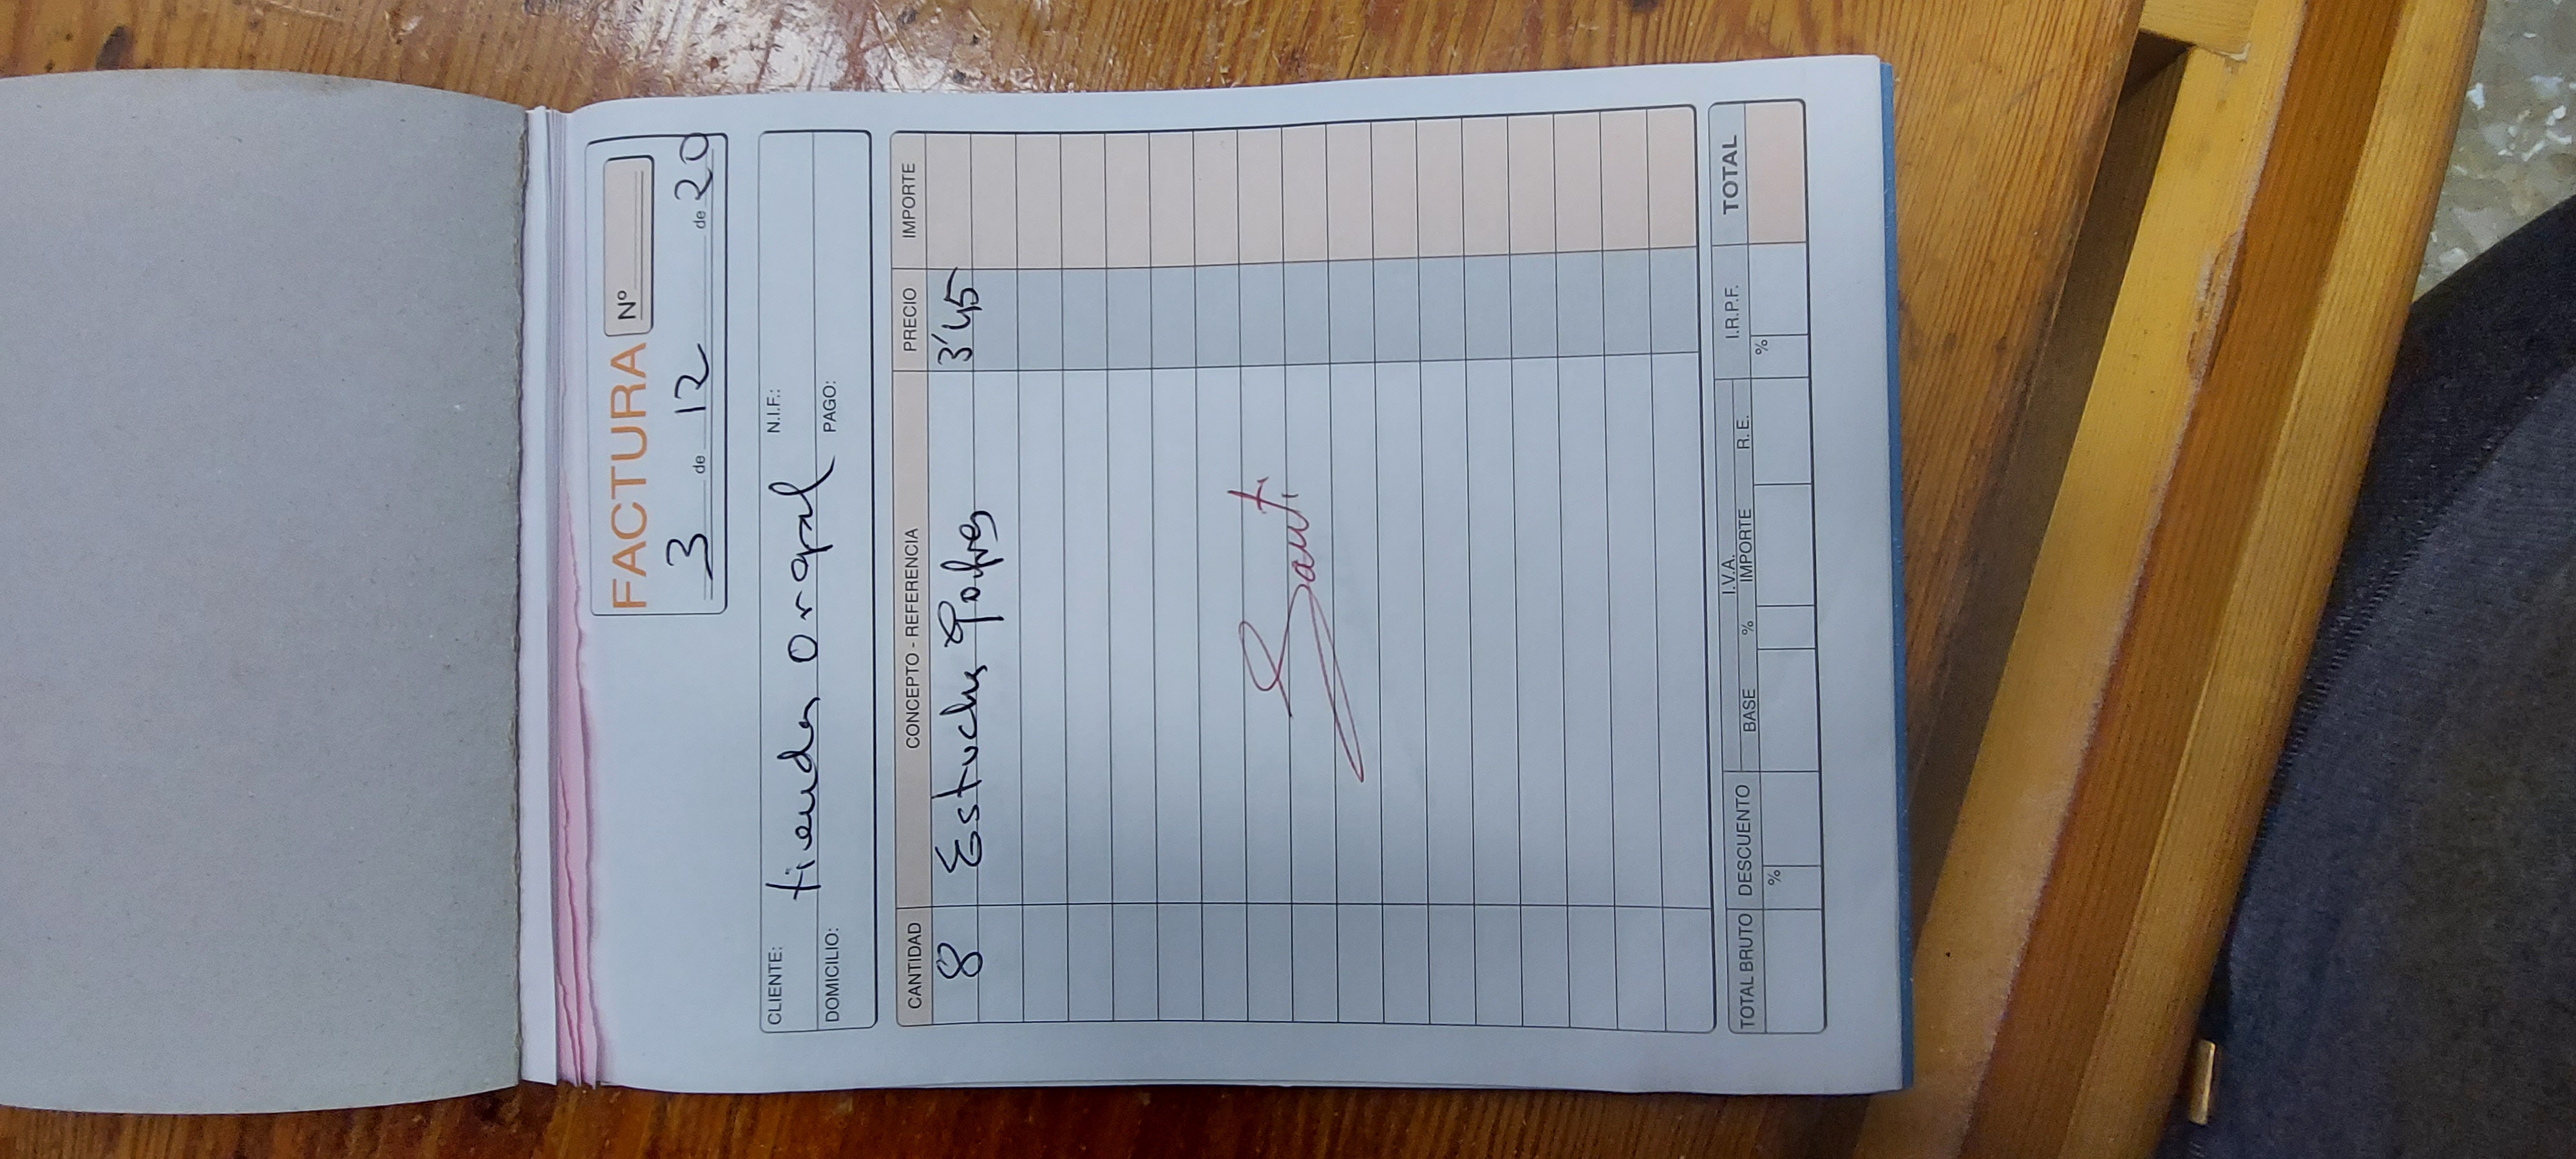 FACTURA Nº
3 de 12 de 20
CLIENTE: tienda N.I.F.:
DOMICILIO: PAGO:
CANTIDAD CONCEPTO - REFERENCIA PRECIO IMPORTE
8 Estuches Gofres 3'45
Santi
TOTAL BRUTO DESCUENTO I.V.A. R.E. I.R.P.F. TOTAL
% BASE % IMPORTE %